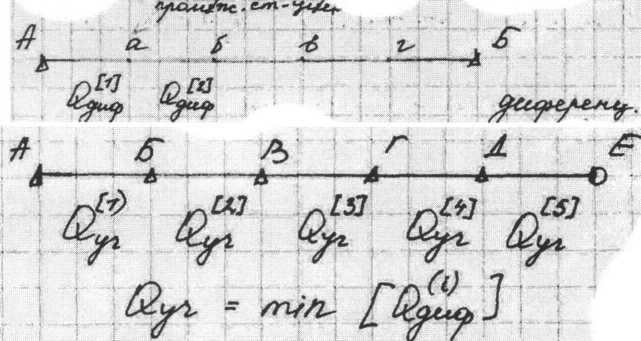 промеж. ст-ции
А а б в г Б
Q диф [1] Q диф [2]
диференц.
А Б В Г Д Е
Q уч [1] Q уч [2] Q уч [3] Q уч [4] Q уч [5]
Q уч = min [Q диф (i)]